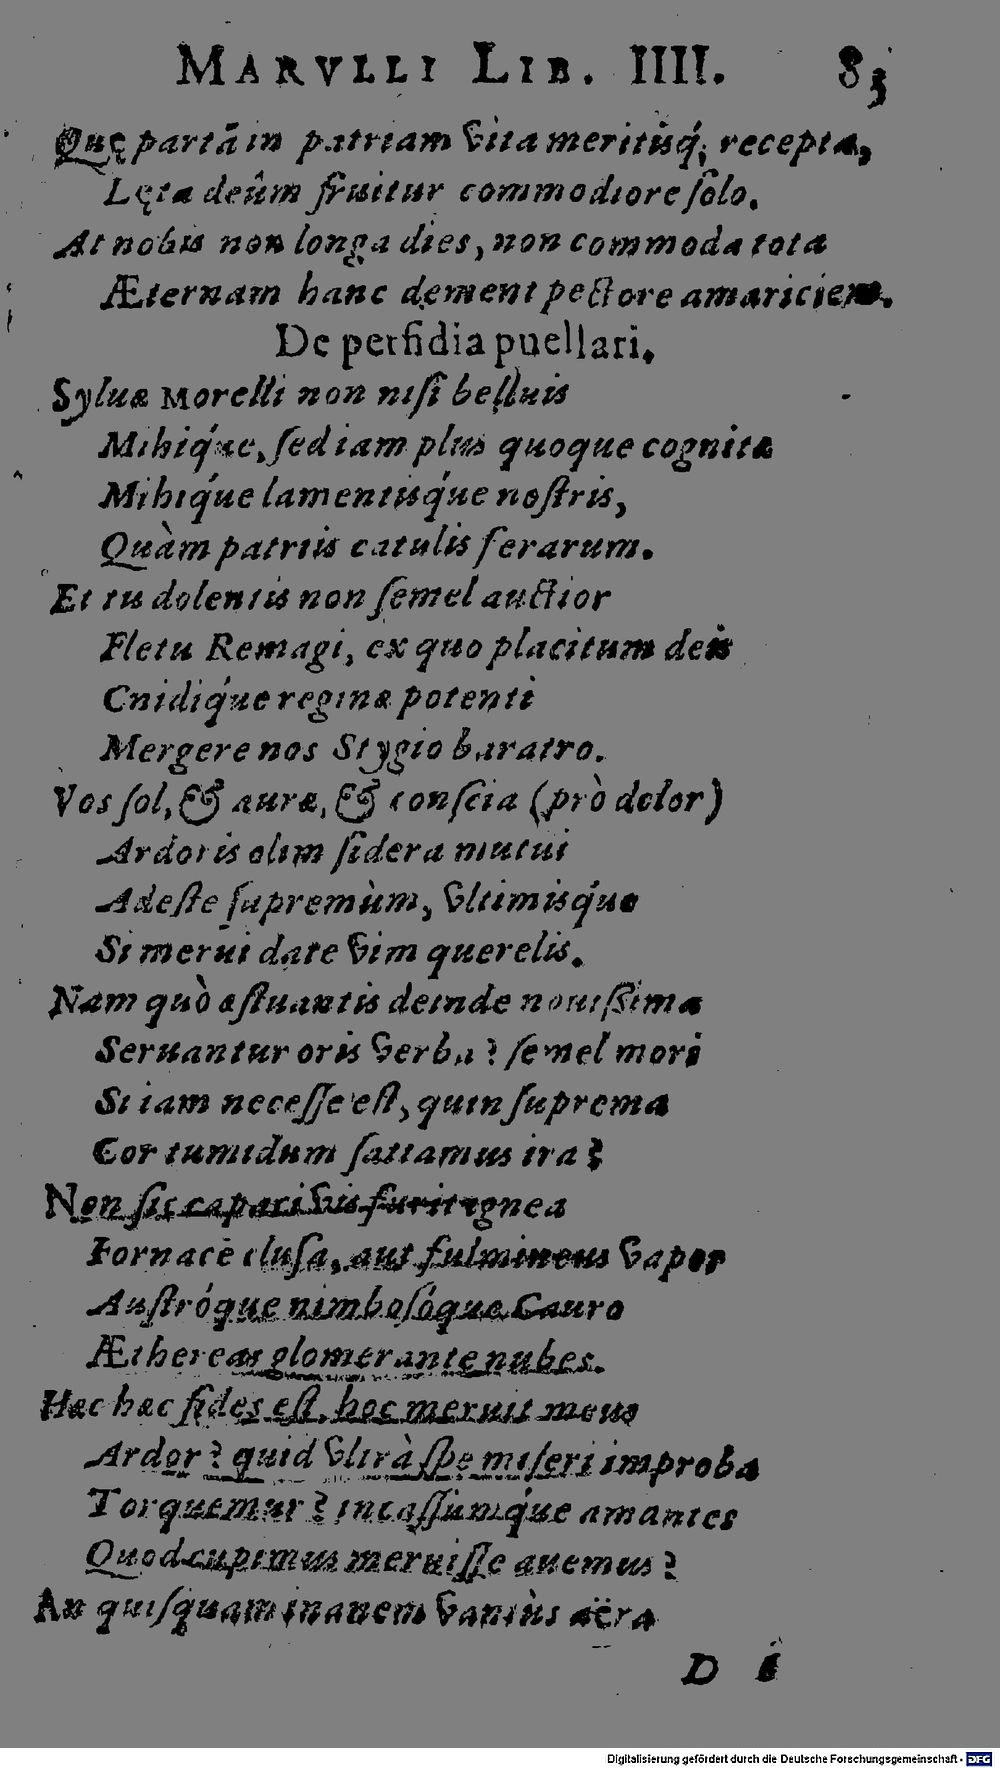 MARVLLI LIB. IIII. 83
Quę partā in patriam vita meritisq́; recepta,
Lęta deûm fruitur commodiore ſolo.
At nobis non longa dies, non commoda tota
Æternam hanc dement pectore amariciem.
De perfidia puellari.
Syluæ Morelli non niſi belluis
Mihiq́ue, ſed iam plus quoque cognitæ
Mihiq́ue lamentisq́ue noſtris,
Quàm patriis catulis ferarum.
Et tu dolentis non ſemel auctior
Fletu Remagi, ex quo placitum deis
Cnidiq́ue reginæ potenti
Mergere nos Stygio baratro.
Vos ſol, & auræ, & conſcia (prò dolor)
Ardoris olim ſidera mutui
Adeſte ſupremùm, vltimisq́ue
Si merui date vim querelis.
Nam quò æſtuantis deinde nouiſſima
Seruantur oris verba? ſemel mori
Si iam neceſſe eſt, quin ſuprema
Cor tumidum ſatiamus ira?
Non ſic capaci vis furit ignea
Fornace cluſa, aut fulmineus vapor
Auſtróque nimboſóque Cauro
Æthereas glomerante nubes.
Hæc hæc fides eſt, hoc meruit meus
Ardor? quid vltrà ſpe miſeri improba
Torquemur? incaſſumq́ue amantes
Quod cupimus meruiſſe auemus?
An quiſquam inanem vaniùs aëra
D i
Digitalisierung gefördert durch die Deutsche Forschungsgemeinschaft - DFG